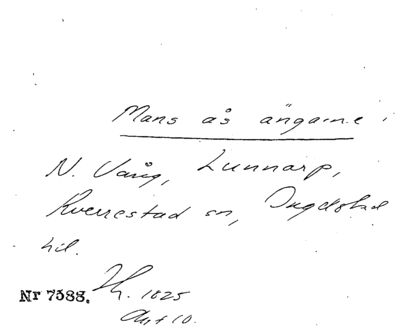 Mans ås ängarne i
N. Vång, Lunnarp,
Kverrestad sn, Ingelstad
hd.
Nr 7388. Ih. 1825
Akt 10.